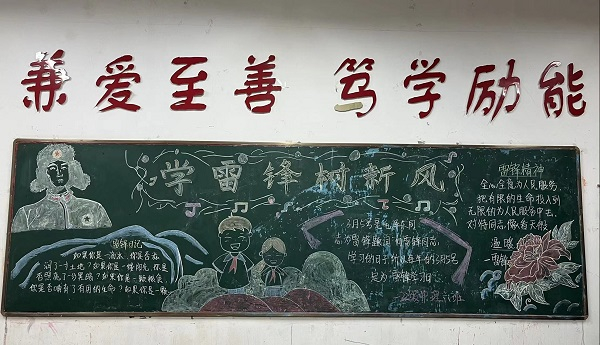 兼爱至善 笃学励能
学雷锋树新风
雷锋日记
如果你是一滴水,你是否滋
润了一寸土地?如果你是一线阳光,你是
否照亮了一分黑暗?如果你是一颗粮食
你是否哺育了有用的生命?如果你是一颗
3月5号是毛泽东同
志为雷锋题词"向雷锋同志
学习的日子,所以每年的3月5号
定为雷锋学习日
雷锋精神
全心全意为人民服务
把有限的生命投入到
无限的为人民服务中去
对待同志,像春天般
温暖